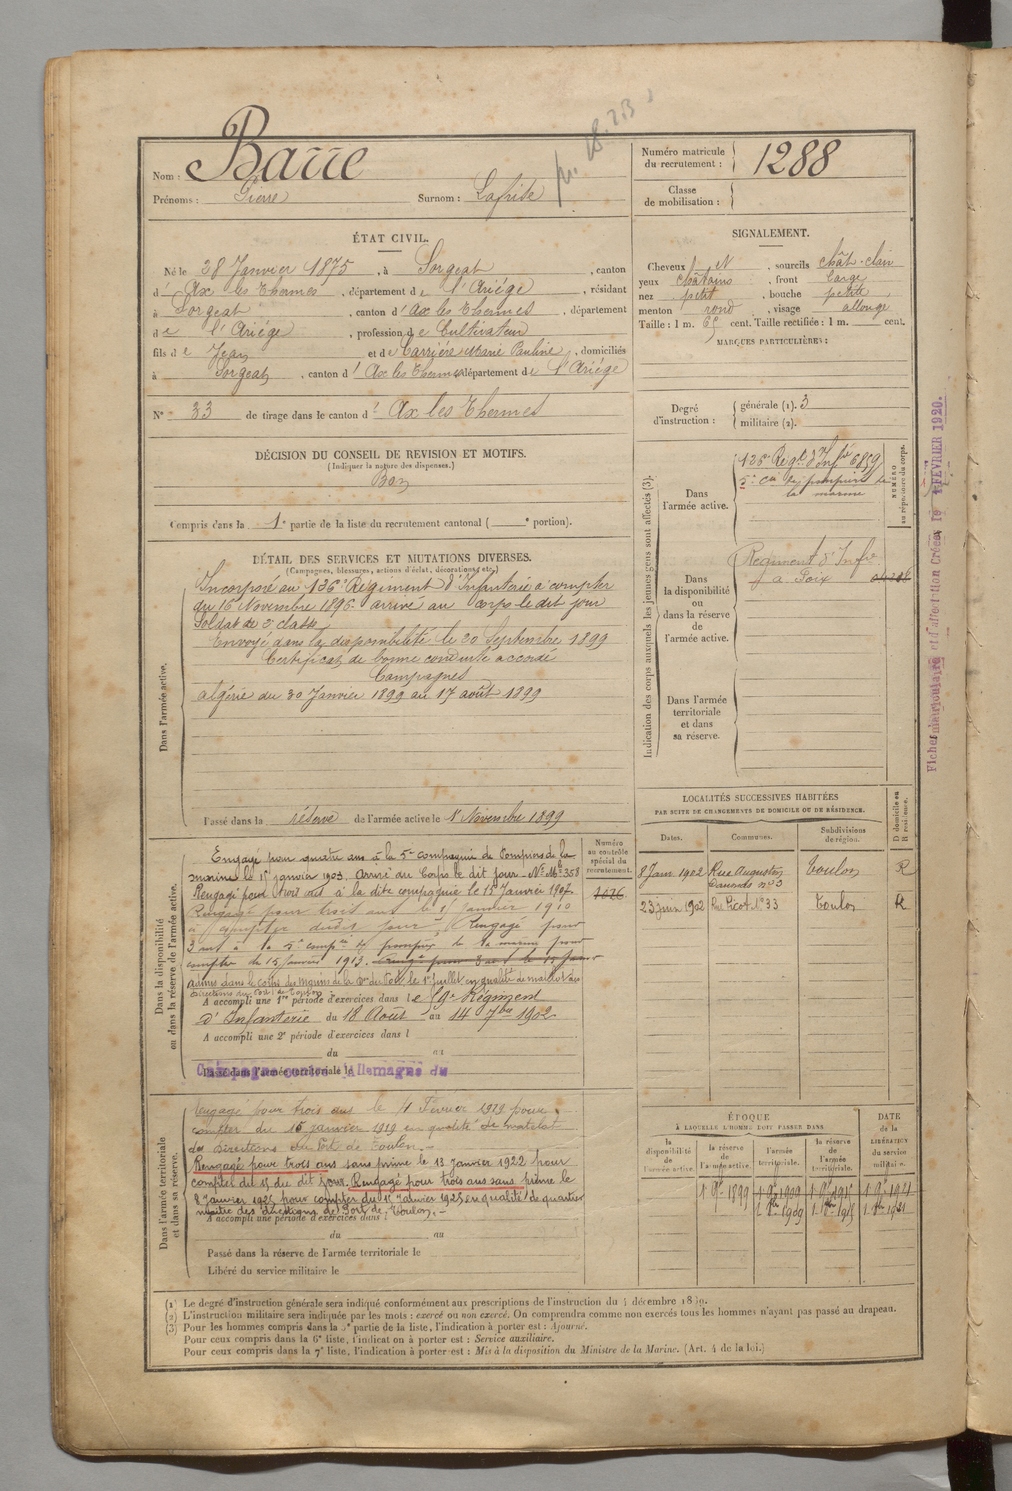 Nom : Barre
Prénoms : Pierre Surnom :
Numéro matricule
du recrutement : 1288
Classe
de mobilisation :
ÉTAT CIVIL.
Né le 28 Janvier 1875, à Sorgeat, canton
d' Ax les Thermes, département de l'Ariège, résidant
à Sorgeat, canton d' Ax les Thermes, département
de l'Ariège, profession de Cultivateur
fils de Jean et de Carrière Marie Pauline, domiciliés
à Sorgeat, canton d' Ax les Thermes département de l'Ariège
N° 33 de tirage dans le canton d' Ax les Thermes
DÉCISION DU CONSEIL DE REVISION ET MOTIFS.
(Indiquer la nature des dispenses.)
Bon
Compris dans la 1e partie de la liste du recrutement cantonal ( e portion).
DÉTAIL DES SERVICES ET MUTATIONS DIVERSES.
(Campagnes, blessures, actions d'éclat, décorations, etc.)
Dans l'armée active.
Incorporé au 126e Régiment d'Infanterie à compter
du 16 Novembre 1896. arrivé au corps le dit jour
Soldat de 2e classe
Envoyé dans la disponibilité le 20 Septembre 1899
Certificat de bonne conduite accordé
Campagnes
algérie du 30 Janvier 1899 au 17 août 1899
Passé dans la réserve de l'armée active le 1er Novembre 1899
Dans la disponibilité
ou dans la réserve de l'armée active.
Numéro
au contrôle
spécial du
recrutement.
Engagé pour quatre ans à la 5e compagnie de Pompiers de la
marine le 15 janvier 1903. Arrivé au Corps le dit jour - N° Mle 358
Rengagé pour trois ans à la dite compagnie le 15 Janvier 1907
Rengagé pour trois ans le 15 Janvier 1910
à compter dudit jour, Rengagé pour
3 ans à la 5e compie de pompiers de la marine pour
compter du 15 Janvier 1913.
admis dans le corps des marins de la Don du Port le 1er Juillet en qualité de matelot des
Directions du Port de Toulon
A accompli une 1re période d'exercices dans le 59e Régiment
d'Infanterie du 18 Août au 14 7bre 1902
A accompli une 2e période d'exercices dans l
du au
Passé dans l'armée territoriale le
Campagne contre l'Allemagne du
Dans l'armée territoriale
et dans sa réserve.
Rengagé pour trois ans le 11 Février 1919 pour
compter du 15 janvier 1919 en qualité de matelot
des Directions du Port de Toulon
Rengagé pour trois ans sans prime le 13 Janvier 1922 pour
compter du 15 du dit jour. Rengagé pour trois ans sans prime le
8 Janvier 1925 pour compter du 15 Janvier 1925 en qualité de quartier
maître des directions de Port de Toulon. -
A accompli une période d'exercices dans l
du au
Passé dans la réserve de l'armée territoriale le
Libéré du service militaire le
SIGNALEMENT.
Cheveux et sourcils chât-clair
yeux châtains, front large
nez petit, bouche petite,
menton rond, visage allongé
Taille : 1 m. 65 cent. Taille rectifiée : 1 m. cent.
MARQUES PARTICULIÈRES :
Degré
d'instruction :
générale (1). 3
militaire (2).
Indication des corps auxquels les jeunes gens sont affectés (3).
NUMÉRO
au répertoire du corps.
Dans
l'armée active.
126e Regt d'Infie 6859
5e Cie de pompiers de
la marine
Dans
la disponibilité
ou
dans la réserve
de
l'armée active.
Régiment d'Infie
à Foix
Dans l'armée
territoriale
et dans
sa réserve.
LOCALITÉS SUCCESSIVES HABITÉES
PAR SUITE DE CHANGEMENTS DE DOMICILE OU DE RÉSIDENCE.
Dates. Communes. Subdivisions
de région. D domicile ou
R résidence.
8 Janv 1902 Rue Augustin
Daumas n° 3 Toulon R
23 juin 1902 Rue Picot N° 33 Toulon R
ÉPOQUE
À LAQUELLE L'HOMME DOIT PASSER DANS
DATE
de la
LIBÉRATION
du service
militaire.
la
disponibilité
de
l'armée active.
la réserve
de
l'armée active.
l'armée
territoriale.
la réserve
de
l'armée
territoriale.
Fiches matriculaire et d'affectation Créées le FÉVRIER 1920.
(1) Le degré d'instruction générale sera indiqué conformément aux prescriptions de l'instruction du 4 décembre 1889.
(2) L'instruction militaire sera indiquée par les mots : exercé ou non exercé. On comprendra comme non exercés tous les hommes n'ayant pas passé au drapeau.
(3) Pour les hommes compris dans la 5e partie de la liste, l'indication à porter est : Ajourné.
Pour ceux compris dans la 6e liste, l'indication à porter est : Service auxiliaire.
Pour ceux compris dans la 7e liste, l'indication à porter est : Mis à la disposition du Ministre de la Marine. (Art. 4 de la loi.)